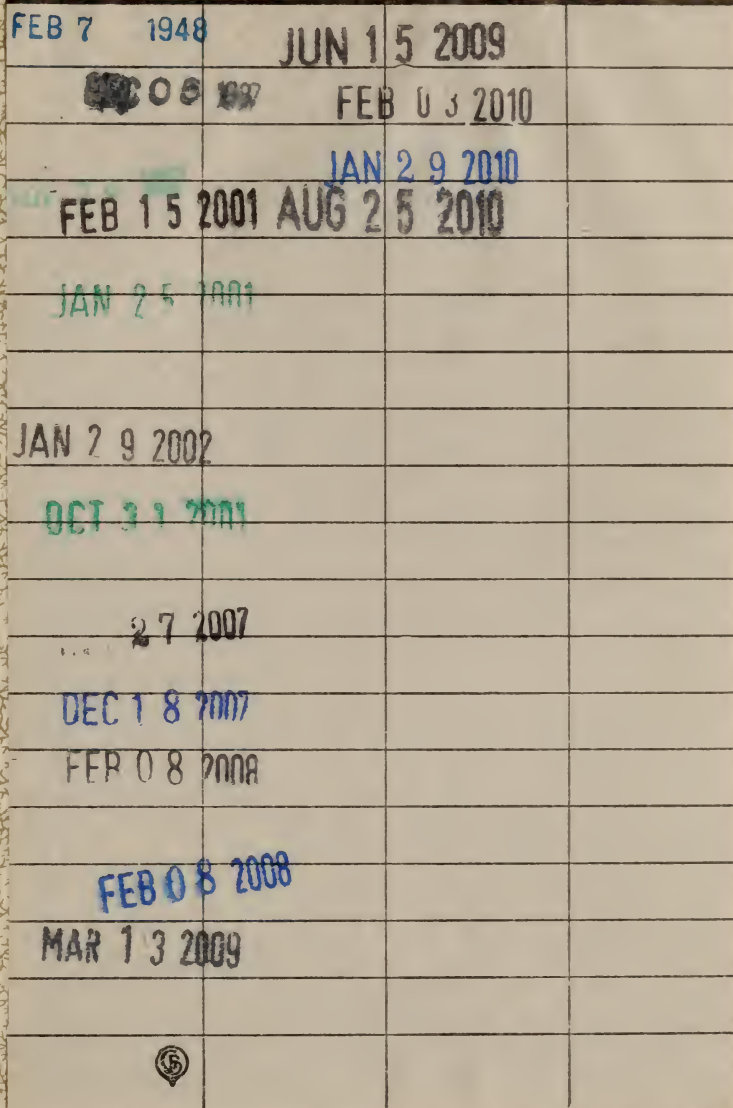 FEB 7 1948
JUN 15 2009
FEB 03 2010
JAN 29 2010
FEB 15 2001
AUG 25 2010
JAN 25 2001
JAN 29 2002
OCT 31 2001
27 2007
DEC 18 2007
FEB 08 2008
FEB 08 2008
MAR 13 2009